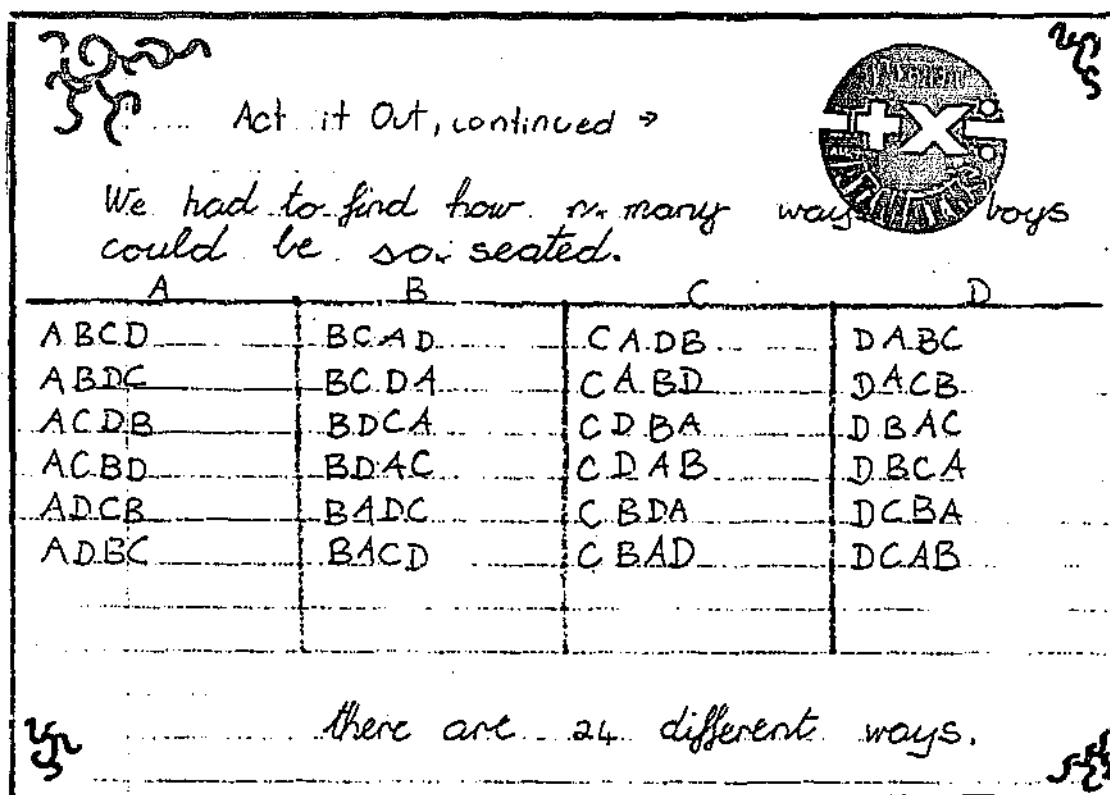 Act it Out, continued →
We had to find how n. many way boys
could be so. seated.
A B C D
ABCD BCAD CADB DABC
ABDC BCDA CABD DACB
ACDB BDCA CDBA DBAC
ACBD BDAC CDAB DBCA
ADCB BADC CBDA DCBA
ADBC BACD CBAD DCAB
there are 24 different ways.